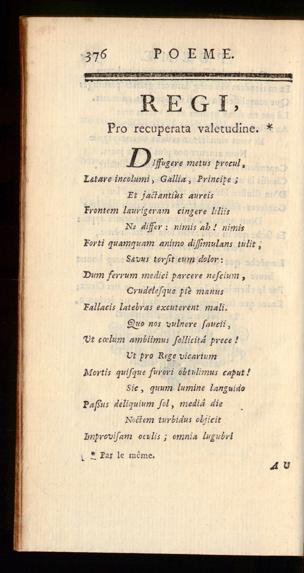 376 POEME.
REGI,
Pro recuperata valetudine. *
Diffugere metus procul,
Lætare incolumi, Gallia, Principe;
Et jactantiùs aureis
Frontem laurigeram cingere liliis
Ne differ: nimis ah! nimis
Forti quamquam animo dissimulans tulit,
Sævus torsit eum dolor:
Dum ferrum medici parcere nescium,
Crudelesque piè manus
Fallacis latebras excuterent mali.
Quo nos vulnere saucii,
Ut cœlum ambiimus sollicitâ prece!
Ut pro Rege vicarium
Mortis quisque furori obtulimus caput!
Sic, quum lumine languido
Passus deliquium sol, mediâ die
Noctem turbidus objicit
Improvisam oculis; omnia lugubri
* Par le même.
AU